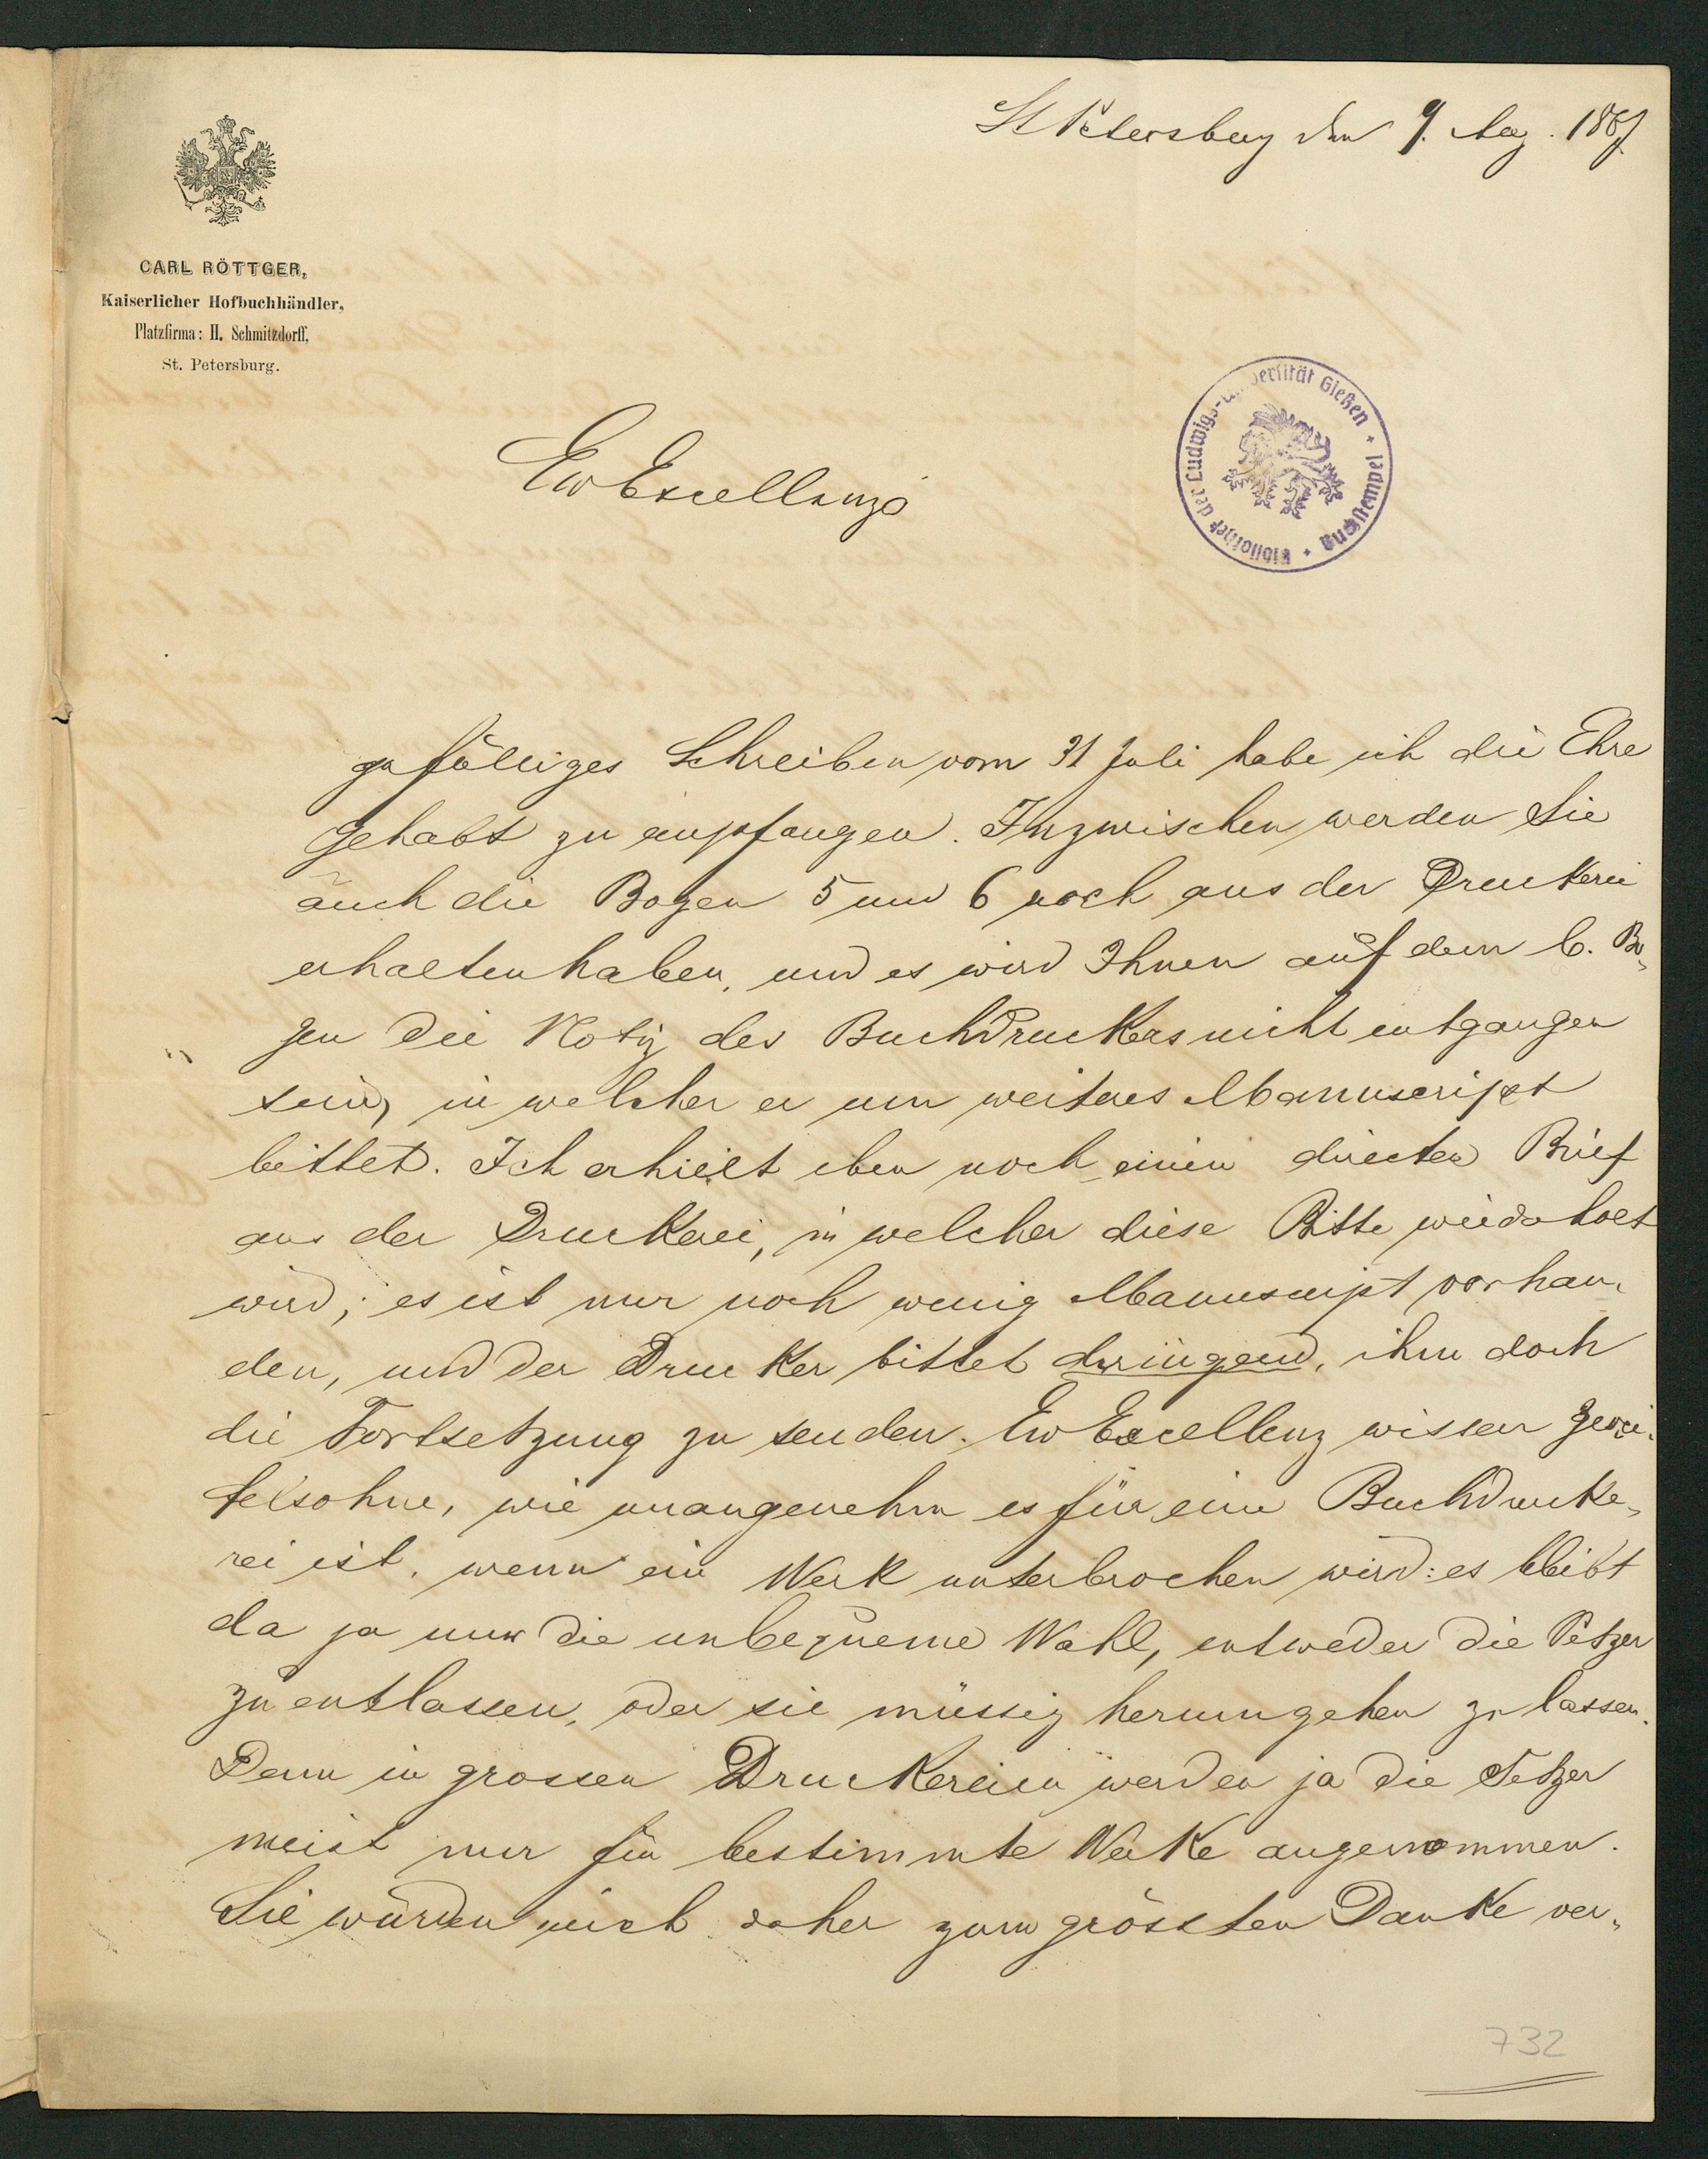 St Petersburg den 9. Aug. 1887.
CARL RÖTTGER,
Kaiserlicher Hofbuchhändler,
Platzfirma: H. Schmitzdorff,
St. Petersburg.
Bibliothek der Ludwigs-Universität Gießen + Buchstempel +
Ew Excellenz
gefälliges Schreiben vom 31 Juli habe ich die Ehre
gehabt zu empfangen. Inzwischen werden Sie
auch die Bogen 5 und 6 noch aus der Druckerei
erhalten haben, und es wird Ihnen auf dem 6. Bo-
gen die Notiz des Buchdruckers nicht entgangen
sein, in welcher er um weiteres Manuscript
bittet. Ich erhielt eben noch einen directen Brief
aus der Druckerei, in welcher diese Bitte wiederholt
wird; es ist nur noch wenig Manuscript vorhan-
den, und der Drucker bittet dringend, ihm doch
die Fortsetzung zu senden. Ew Excellenz wissen zwei-
felsohne, wie unangenehm es für eine Buchdrucke-
rei ist, wenn ein Werk unterbrochen wird: es bleibt
da ja nur die unbequeme Wahl, entweder die Setzer
zu entlassen, oder sie müssig herumgehen zu lassen.
Denn in grossen Druckereien werden ja die Setzer
meist nur für bestimmte Werke angenommen.
Sie würden mich daher zum grössten Danke ver-
732